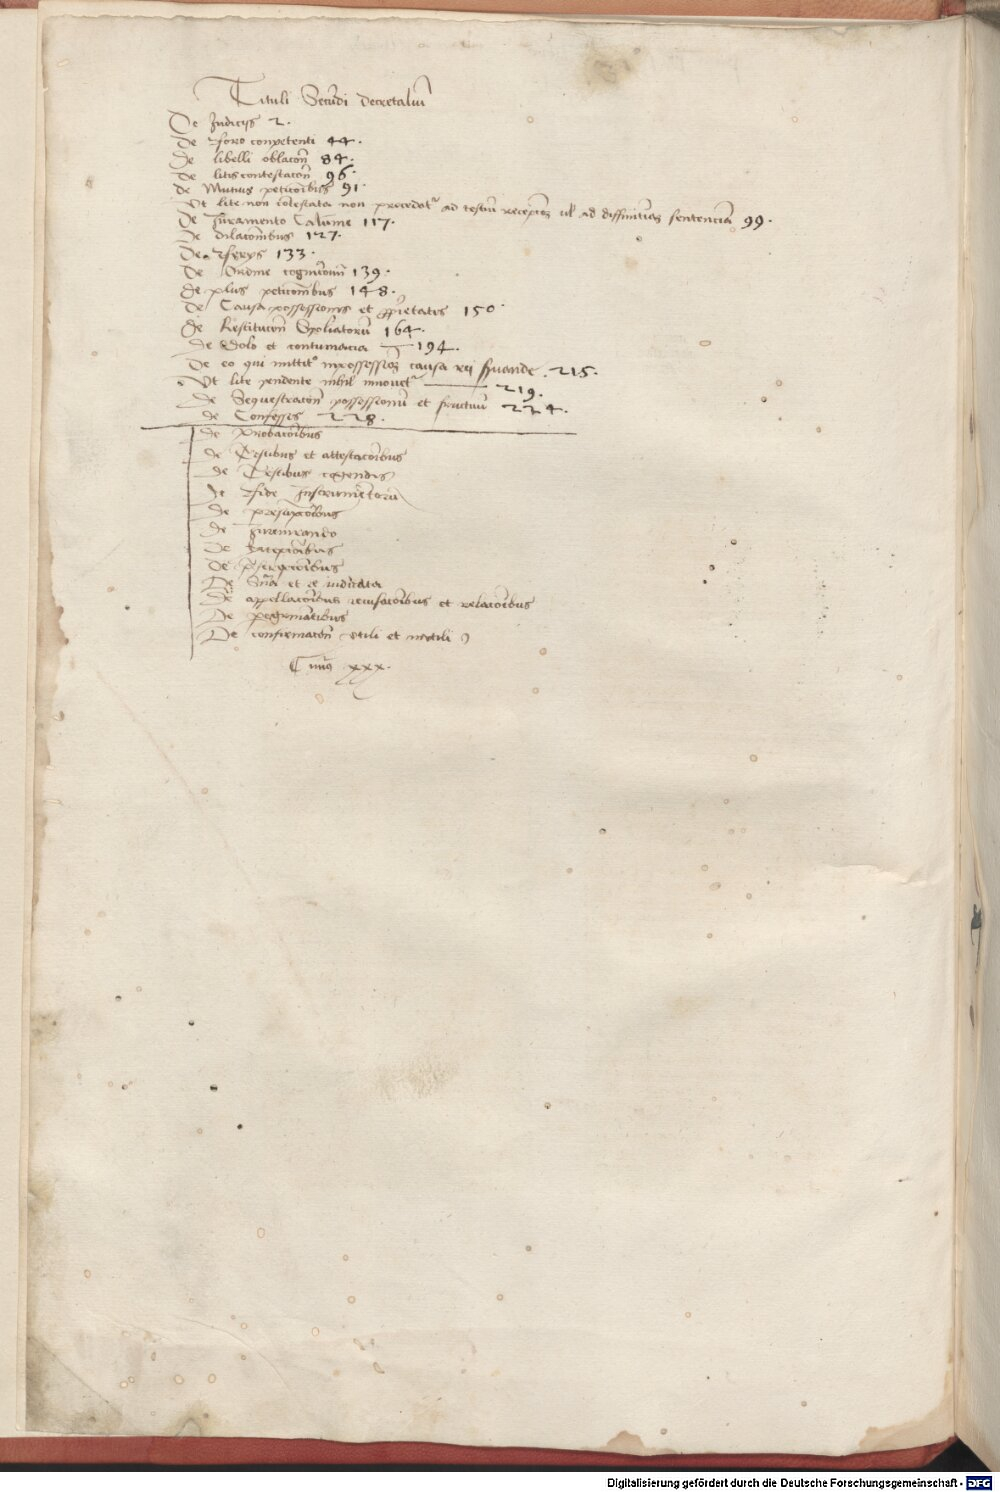 Tituli Secu̅di decretaliu̅
De Iudicijs 2.
De foro conpetenti 44.
De libelli oblaco̅n 84.
De litis contestaco̅n 96.
De Mutuis petico̅ibus 91.
Ut lite non co̅testata non procedat' ad testiu̅ recepco̅em ul' ad diffinitiua̅ sentencia̅ 99.
De Iuramento Calu̅me 117.
De dilaco̅nibus 127.
De ferijs 133.
De Ordine cognico̅nu̅ 139.
De plus petico̅nibus 148.
De Causa possessionis et pp̅rietatis 150
De Restituco̅n Spoliatoru̅ 164.
De dolo et contumacia 194.
De eo qui mittit' in possession̅ causa rei s̅uande. 215.
Ut lite pendente nihil innouet' 219.
De Sequestraco̅n possessionu̅ et fructuu̅ 224.
De Confessis 228.
De Probaco̅ibus
De Testibus et attestaco̅ibus
De Testibus cogendis
De fide Instrume̅toru̅
De presu̅pco̅ibus
De Iureiurando
De Excepco̅ibus
De p̅scripco̅ibus
De S̅nia et re iudicata
De appellaco̅ibus recusaco̅ibus et relaco̅ibus
De peregrina̅tibus
De confirmaco̅n utili et inutili
xxx.
Digitalisierung gefördert durch die Deutsche Forschungsgemeinschaft - DFG